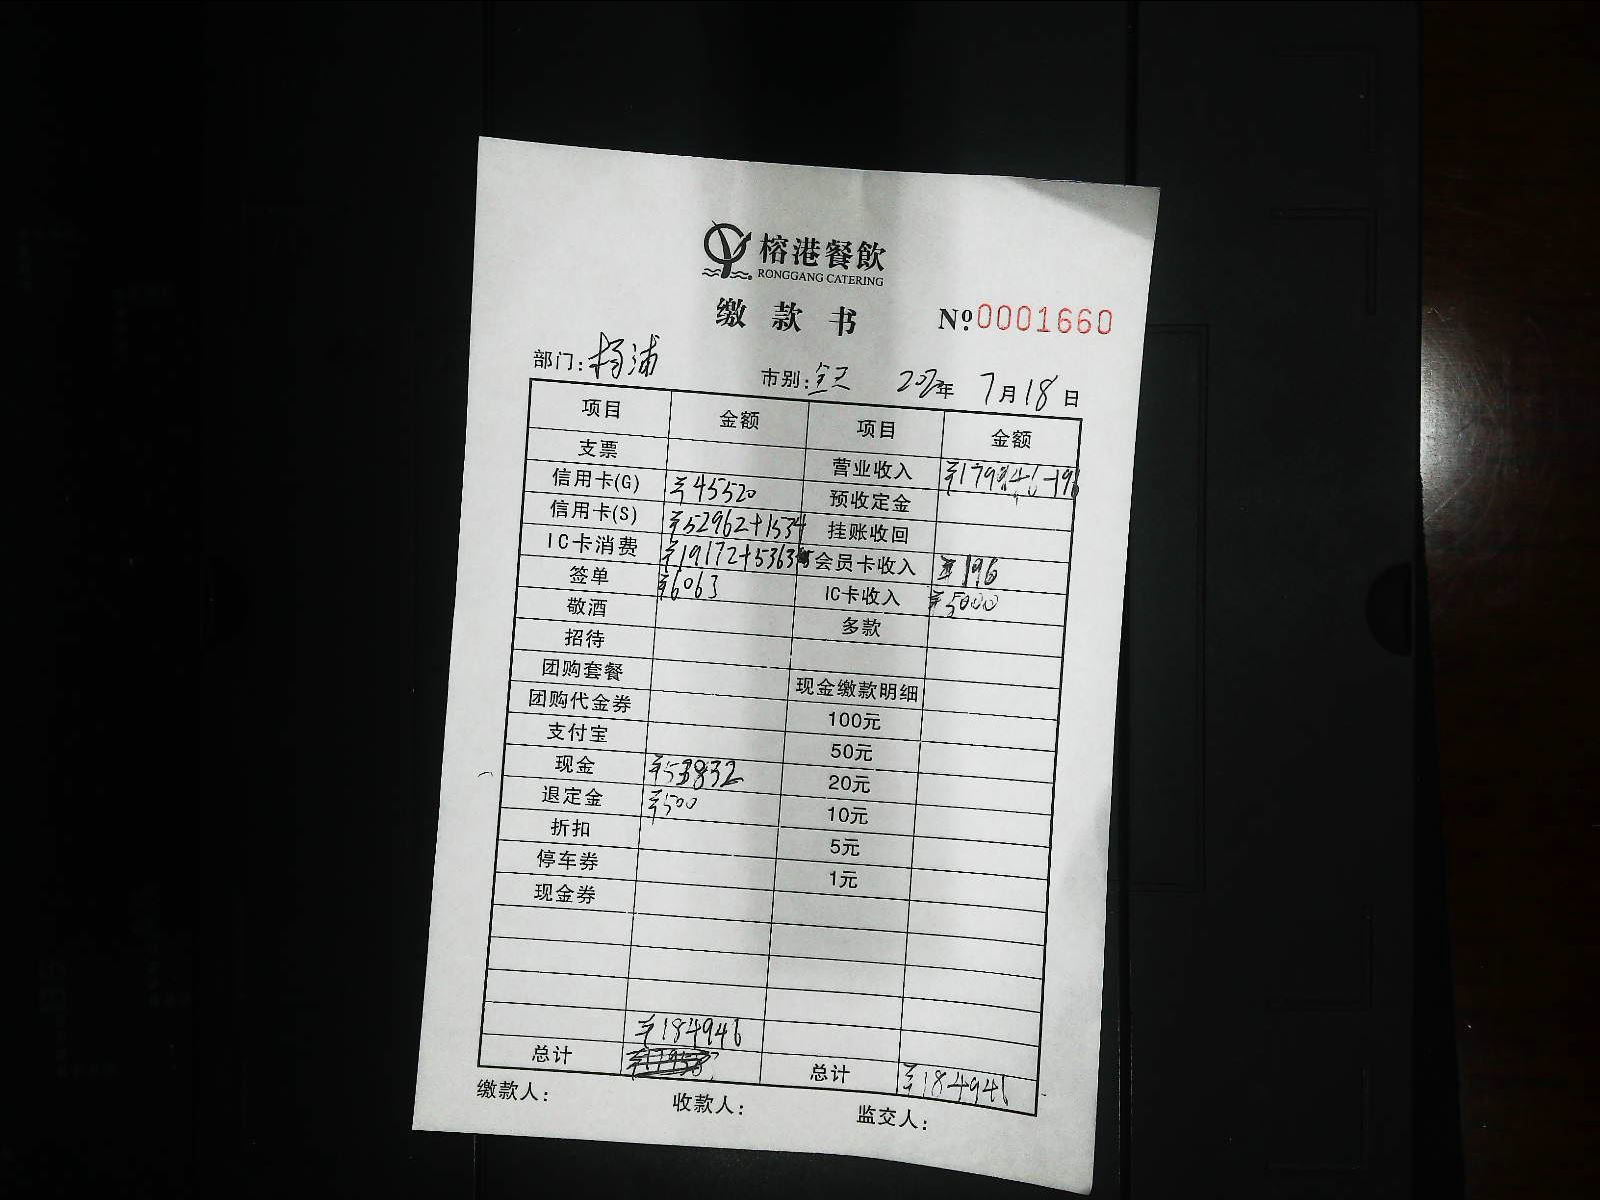 榕港餐飲
RONGGANG CATERING
缴款书 Nº:0001660
部门:杨浦 市别:全天 年 7月18日
项目 金额 项目 金额
支票 营业收入 ¥179946-196
信用卡(G) ¥45520 预收定金
信用卡(S) ¥52962+1534 挂账收回
IC卡消费 ¥19172+5363 会员卡收入 ¥196
签单 ¥6063 IC卡收入 ¥5000
敬酒 多款
招待
团购套餐 现金缴款明细
团购代金券 100元
支付宝 50元
现金 ¥53832 20元
退定金 ¥500 10元
折扣 5元
停车券 1元
现金券
¥184946
总计 总计 ¥184946
缴款人: 收款人: 监交人: